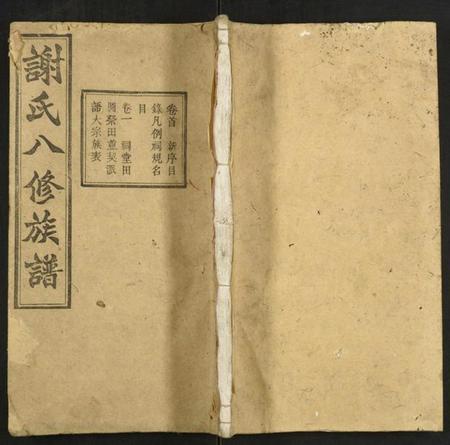 謝氏八修族譜
卷首 新序目
錄凡例祠規名
目
卷一 祠堂田
圖祭田萱契派
語大宗族表